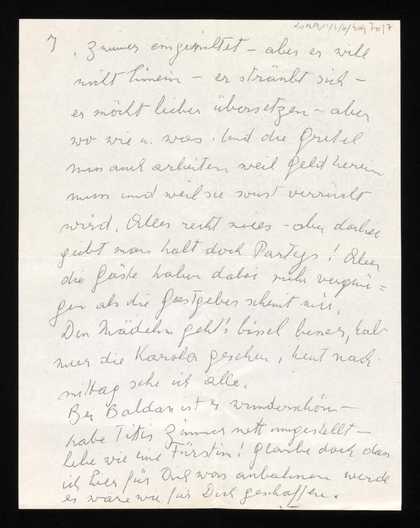 7
Zimmer eingerichtet – aber er will
nicht hinein – er sträubt sich –
er möcht lieber übersetzen – aber
wo wie u. was. Und die Gretel
muss auch arbeiten weil Geld herein
muss und weil sie sonst verrückt
wird. Alles recht mies – aber dabei
giebt man halt doch Partys! Aber
die Gäste haben dabei mehr vergnü=
gen als die Gastgeber scheint mir.
Den Mädeln geht's bissel besser, hab
nur die Karola gesehen, heut nach-
mittag sehe ich alle.
Bei Baldas ist es wunderschön –
habe Tittis Zimmer nett umgestellt –
lebe wie eine Fürstin! Glaube doch dass
ich hier für Dich was anbahnen werde
es wäre wie für Dich geschaffen.